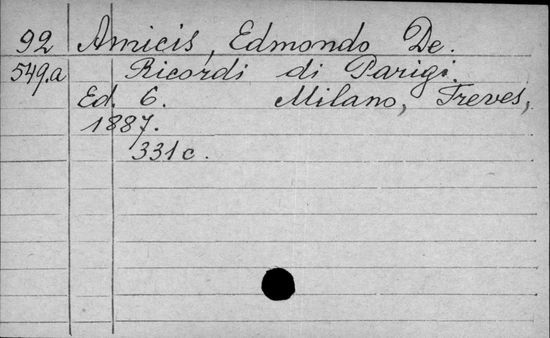 92 Amicis, Edmondo De.
549.a Ricordi di Parigi.
Ed. 6. Milano, Treves,
1887.
331c.